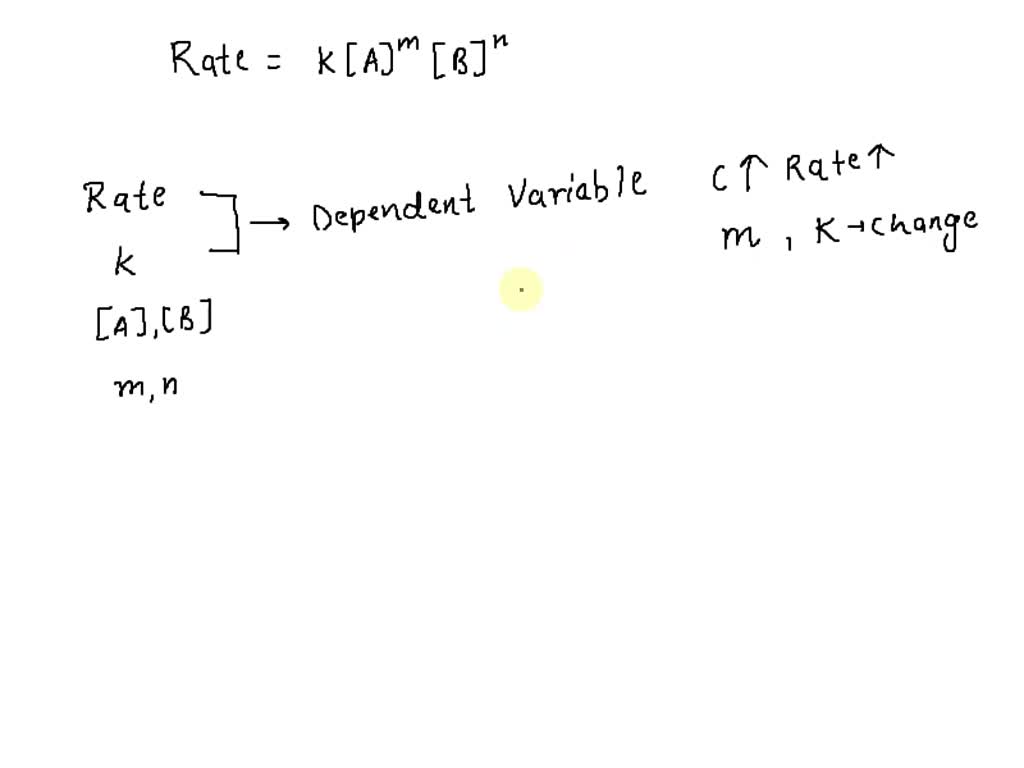 Rate = k[A]^m [B]^n
Rate ] → Dependent Variable C↑ Rate↑
k m, K→change
[A],[B]
m,n